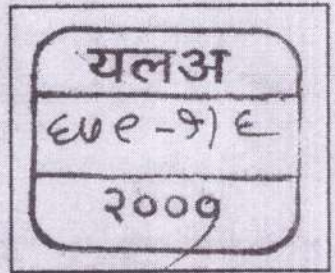 यलअ
६७९-१/६
२००१